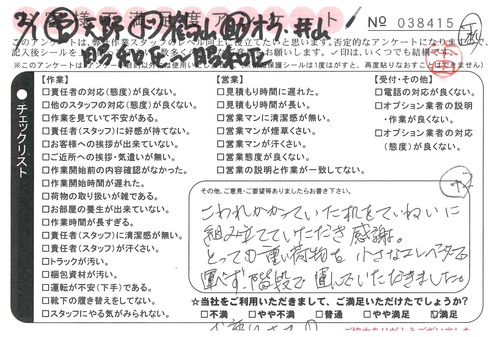 お客様満足度アンケート
No 038415
このアンケートは、弊社作業スタッフのレベル向上に役立てたいと思います。否定的なアンケートになりますので、
記入後シールを
✓印は、いくつでも結構です。
チェックリスト
【作業】
□責任者の対応(態度)が良くない。
□他のスタッフの対応(態度)が良くない。
□作業を見ていて不安がある。
□責任者(スタッフ)に好感が持てない。
□お客様への挨拶が出来ていない。
□ご近所への挨拶・気遣いが無い。
□作業開始前の内容確認がなかった。
□作業開始時間が遅れた。
□荷物の取り扱いが雑である。
□お部屋の養生が出来ていない。
□作業時間が長すぎる。
□責任者(スタッフ)に清潔感が無い。
□責任者(スタッフ)が汗くさい。
□トラックが汚い。
□梱包資材が汚い。
□運転が不安(下手)である。
□靴下の履き替えをしてない。
□スタッフにやる気がみられない。
【営業】
□見積もり時間に遅れた。
□見積もり時間が長い。
□営業マンに清潔感が無い。
□営業マンが煙草くさい。
□営業マンが汗くさい。
□営業態度が良くない。
□営業の説明と作業が一致してない。
【受付・その他】
□電話の対応が良くない。
□オプション業者の説明
・作業が良くない。
□オプション業者の対応
(態度)が良くない。
その他、ご意見・ご要望等ありましたらお書き下さい。
こわれかかっていた机をていねいに
組み立てていただき感謝。
とっても重い荷物を小さなエレベーターで
運べず、階段で運んでいただきました。
☆当社をご利用いただきまして、ご満足いただけたでしょうか?
□不満 □やや不満 □普通 □やや満足 ☑満足